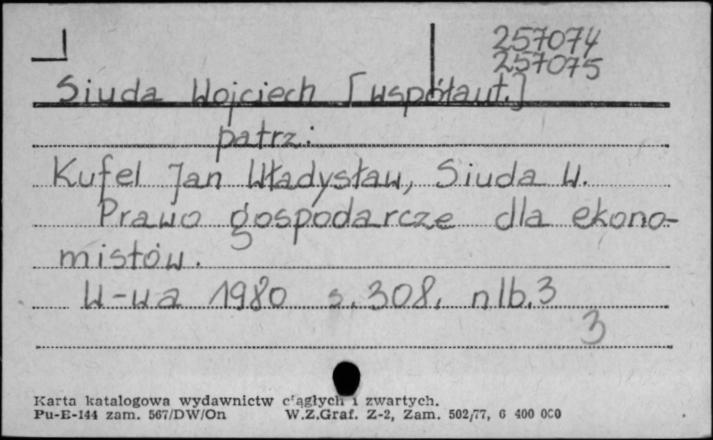 257074
257075
Siuda Wojciech [współaut.]
patrz:
Kufel Jan Władysław, Siuda W.
Prawo gospodarcze dla ekono-
mistów.
W-wa 1980 s. 308, nlb. 3
3
Karta katalogowa wydawnictw ciągłych i zwartych.
Pu-E-144 zam. 567/DW/On W.Z.Graf. Z-2, Zam. 502/77, 6 400 000